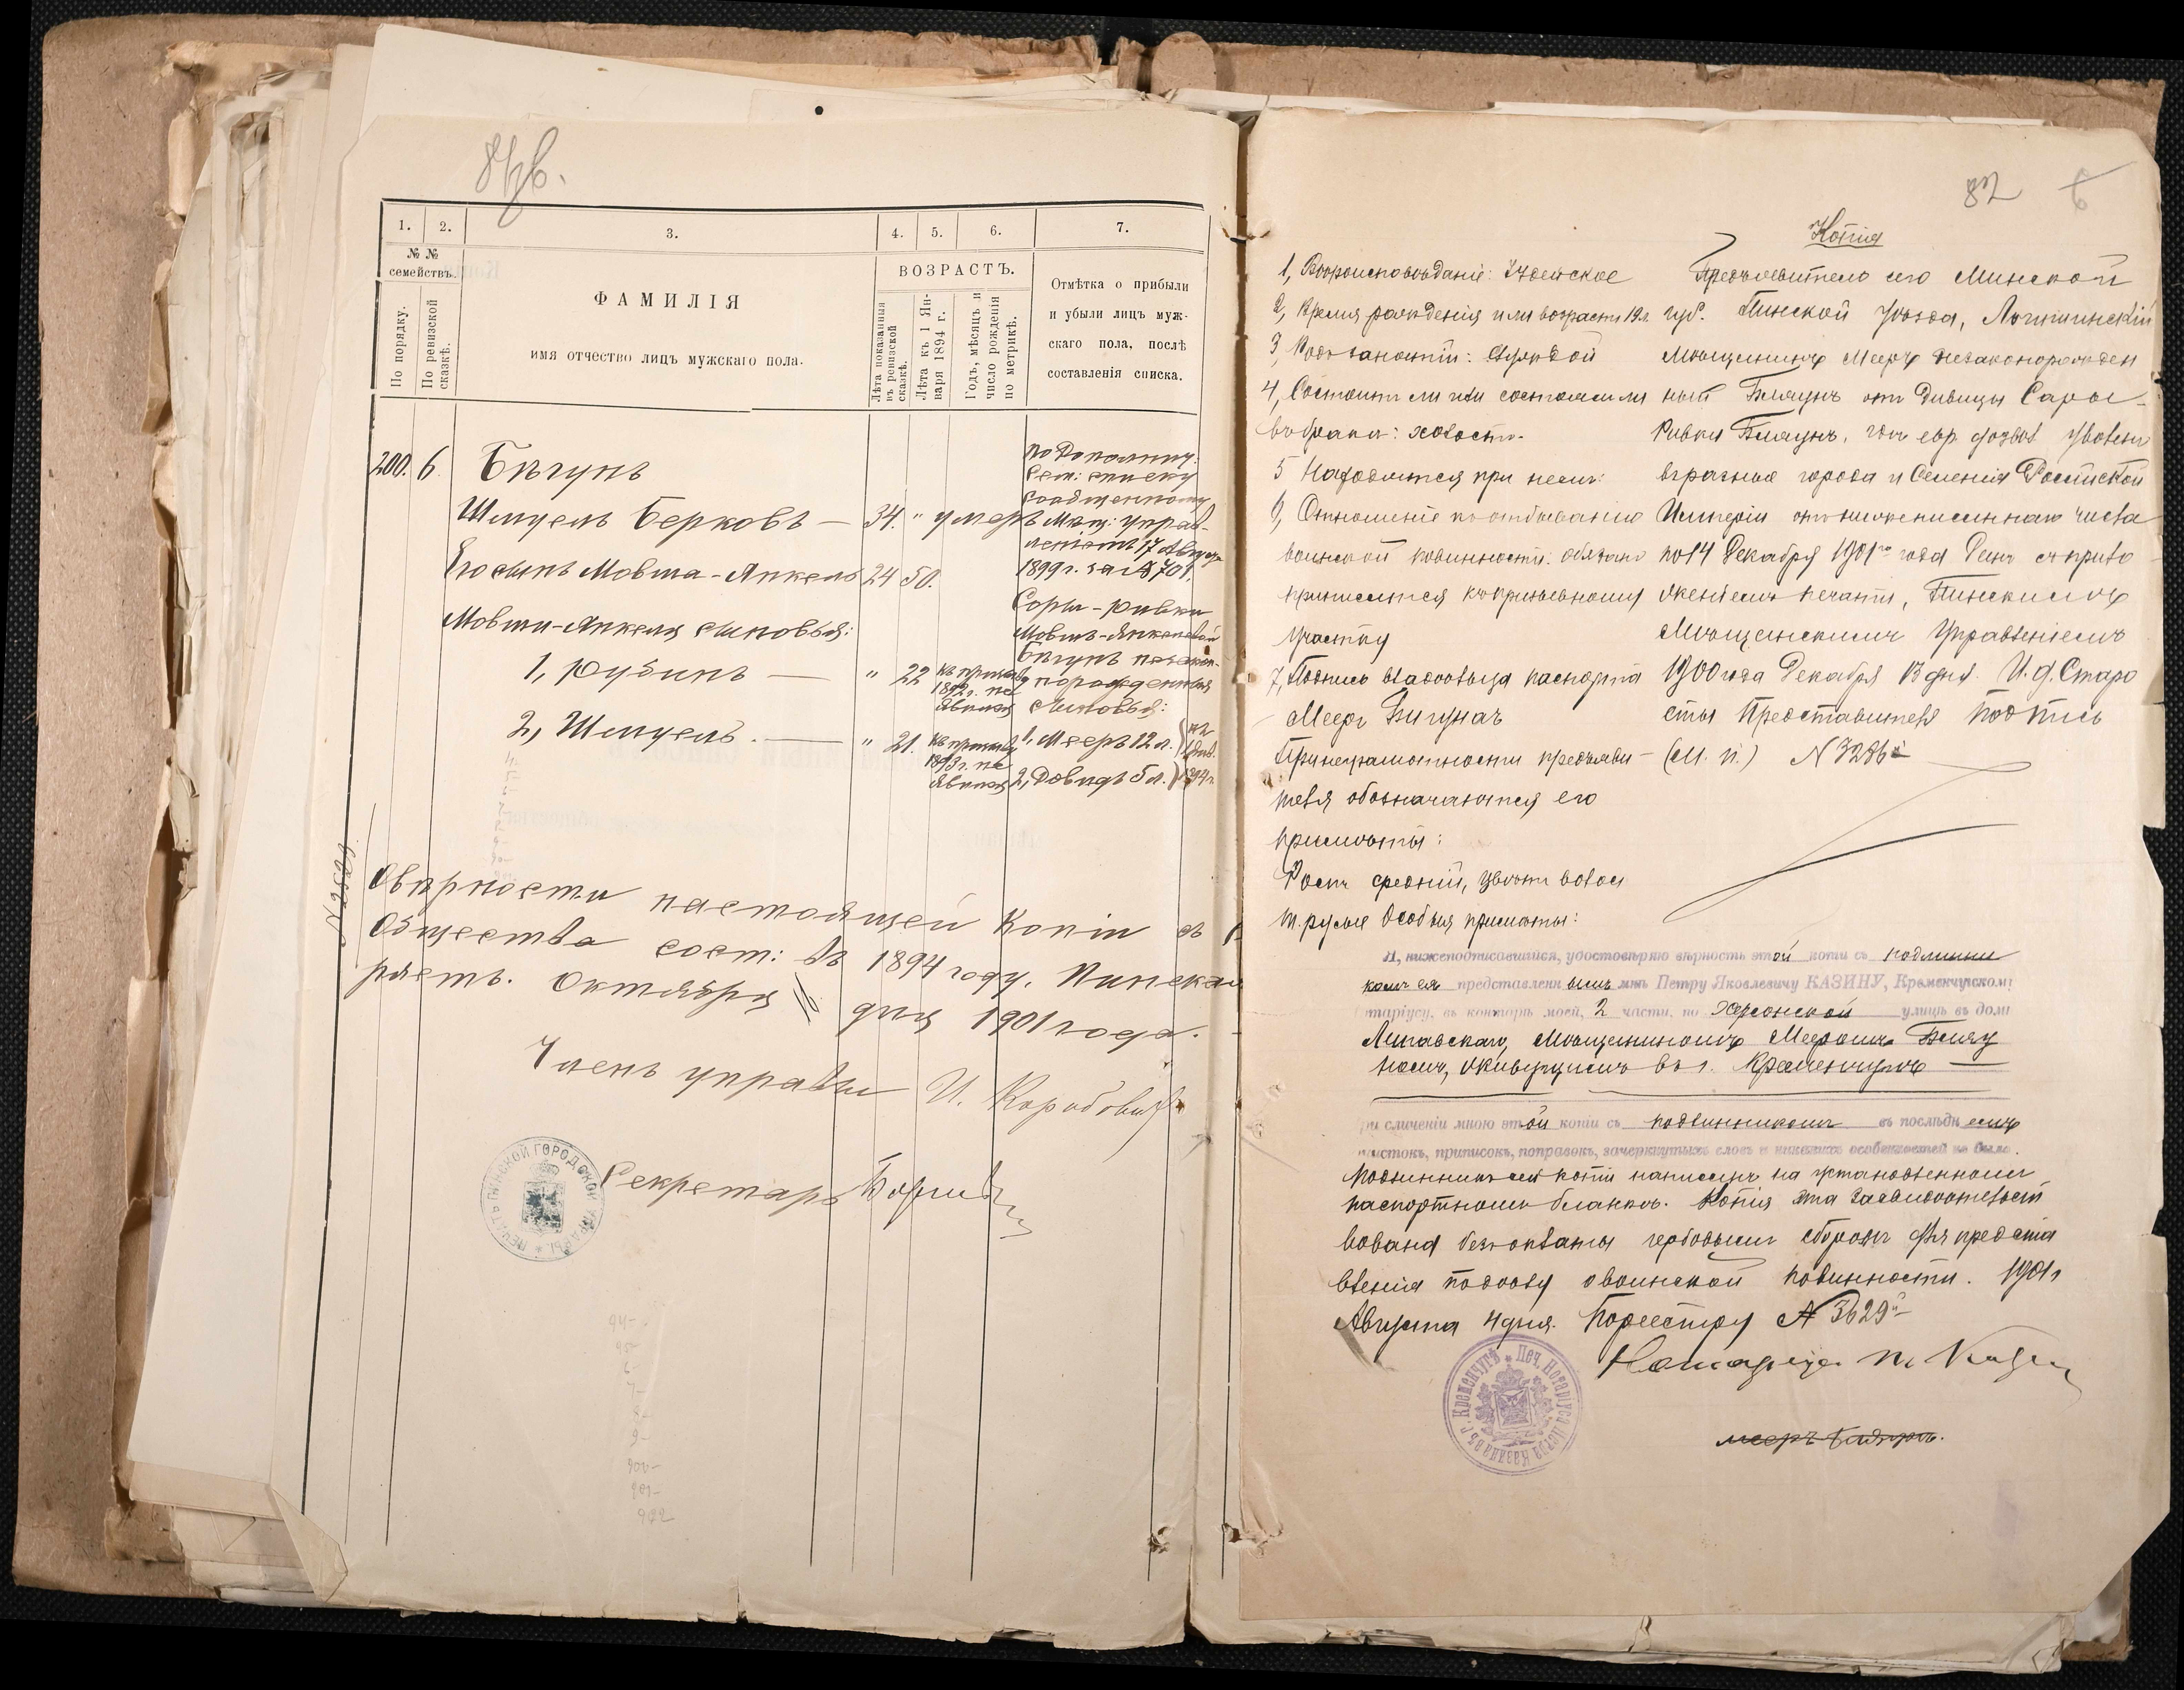 81об.
1. 2. 3. 4. 5. 6. 7.
№ №
семействъ.
По порядку.
По ревизской
сказкѣ.
ФАМИЛІЯ
имя отчество лицъ мужскаго пола.
ВОЗРАСТЪ.
Лѣта показанныя
въ ревизской
сказкѣ.
Лѣта къ 1 Ян-
варя 1894 г.
Годъ, мѣсяцъ и
число рожденія
по метрикѣ.
Отмѣтка о прибыли
и убыли лицъ муж-
скаго пола, послѣ
составленія списка.
200. 6 Бѣгунъ
Шмуель Берковъ — 34. " умеръ
Его сынъ Мовша-Янкель 24 50.
Мовши-Янкеля сыновья:
1, Рубинъ — " 22 къ призыву
1892 г. не
явился
2, Шмуель. — " 21. къ призыву
1893 г. не
явился
по дополнит:
сем: списку
сообщенному
Мѣщ: управ-
леніемъ 17 Августа
1899 г. за № 701.
Соры-Ривки
Мовшъ-Янкелевой
Бѣгунъ незакон-
но рожденныя
сыновья:
1, Мееръ 12 л.
2, Довидъ 5 л.
1894 г.
Овѣрности настоящей копіи съ
Общества сост: въ 1894 году, Пинская
ряетъ. Октября 11 дня 1901 года.
Членъ управы И.
Секретарь
ПЕЧАТЬ ПИНСКОЙ ГОРОДСКОЙ УПРАВЫ
94-
95-
6-
7-
8-
9-
900-
901-
902
82
6
Копія
1, Вѣроисповѣданіе: Іудейское
2, Время рожденія или возрастъ 19 л.
3, Родъ занятій:
4, Состоитъ ли или состоялъ ли
въ бракѣ: холостъ.
5 Находятся при немъ:
6, Отношеніе къ отбыванію
воинской повинности: обязанъ
приписаться къ призывному
участку
7, Подпись владѣльца паспорта
Мееръ Бигунъ
При неграмотности предъяви-
теля обозначаются его
примѣты:
Ростъ средній, цвѣтъ волосъ
т. русые Особыя примѣты:
Предъявитель сего Минской
губ. Пинской уѣзда, Логишинскій
мѣщанинъ Мееръ незаконорожден
ный Бигунъ отъ дѣвицы Сары-
Ривки Бигунъ, уволенъ
въ разные города и Селенія Россійской
Имперіи отъ нижеписаннаго числа
по 14 Декабря 1901го года Данъ съ прило
женіемъ печати, Пинскимъ
Мѣщанскимъ Управленіемъ
1900 года Декабря 13 дня. И. д. Старо
сты Представителя Подпись
(М. П.) № 3286й
Я, нижеподписавшійся, удостовѣряю вѣрность этой копіи съ подлинни
комъ ея представленнымъ мнѣ Петру Яковлевичу КАЗИНУ, Кременчугскому
тариусу, въ конторѣ моей, 2 части, по Херсонской улицѣ въ домѣ
Литавскаго, мѣщаниномъ Мееромъ Бигу
номъ, живущимъ въ г. Кременчугѣ
ри сличеніи мною этой копіи съ подлинникомъ въ послѣднемъ
чистокъ, приписокъ, поправокъ, зачеркнутыхъ словъ и никакихъ особенностей не было.
Подлинникъ сей копіи написанъ на установленномъ
паспортномъ бланкѣ. Копія эта засвидѣтельст
вована безъ оплаты гербовымъ сборомъ для предста
вленія по дѣлу о воинской повинности. 1901 г
Августа 4 дня. По реестру № 3629й
Нотаріусъ П. Казинъ
Печ. Нотаріуса Петра Казина въ г. Кременчугѣ